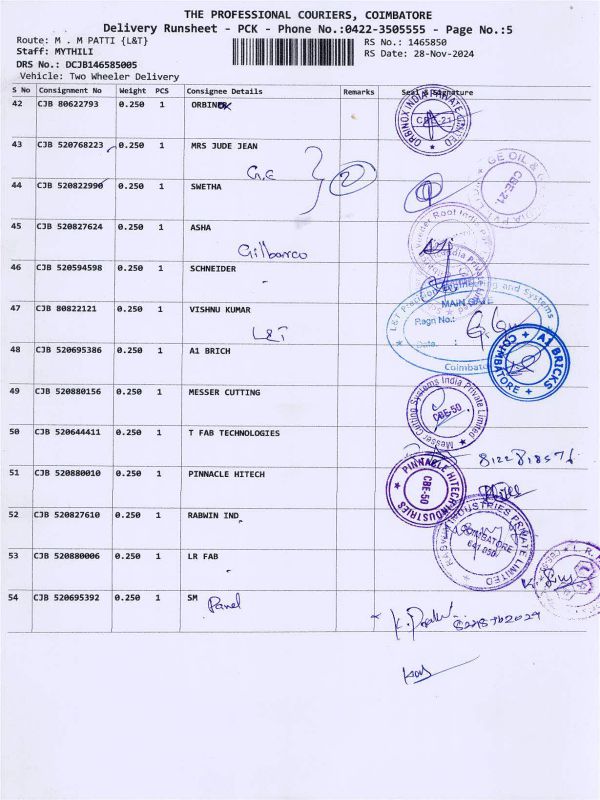 THE PROFESSIONAL COURIERS, COIMBATORE
Delivery Runsheet - PCK - Phone No.:0422-3505555 - Page No.:5
Route: M . M PATTI {L&T} RS No.: 1465850
Staff: MYTHILI RS Date: 28-Nov-2024
DRS No.: DCJB146585005
Vehicle: Two Wheeler Delivery
S No Consignment No Weight PCS Consignee Details Remarks Seal & Signature
42 CJB 80622793 0.250 1 ORBINOX
ORBINOX INDIA PRIVATE LIMITED
CBE-21
43 CJB 520768223 0.250 1 MRS JUDE JEAN
G.E
2
GE OIL &
CBE-21.
44 CJB 520822990 0.250 1 SWETHA
45 CJB 520827624 0.250 1 ASHA
Root India
Gilbarco
46 CJB 520594598 0.250 1 SCHNEIDER
India Private
47 CJB 80822121 0.250 1 VISHNU KUMAR
L&T
L&T Precision Engineering and Systems
MAIN GATE
Regn No.:
Date. :
Coimbatore
48 CJB 520695386 0.250 1 A1 BRICH
A1 BRICKS
COIMBATORE
49 CJB 520880156 0.250 1 MESSER CUTTING
Messer Cutting Systems India Private Limited
CBE-50
50 CJB 520644411 0.250 1 T FAB TECHNOLOGIES
51 CJB 520880010 0.250 1 PINNACLE HITECH
PINNACLE HITECH INDUSTRIES
CBE-50
52 CJB 520827610 0.250 1 RABWIN IND
RABWIN INDUSTRIES PRIVATE LIMITED
COIMBATORE
641 050.
53 CJB 520880006 0.250 1 LR FAB
54 CJB 520695392 0.250 1 SM Panel